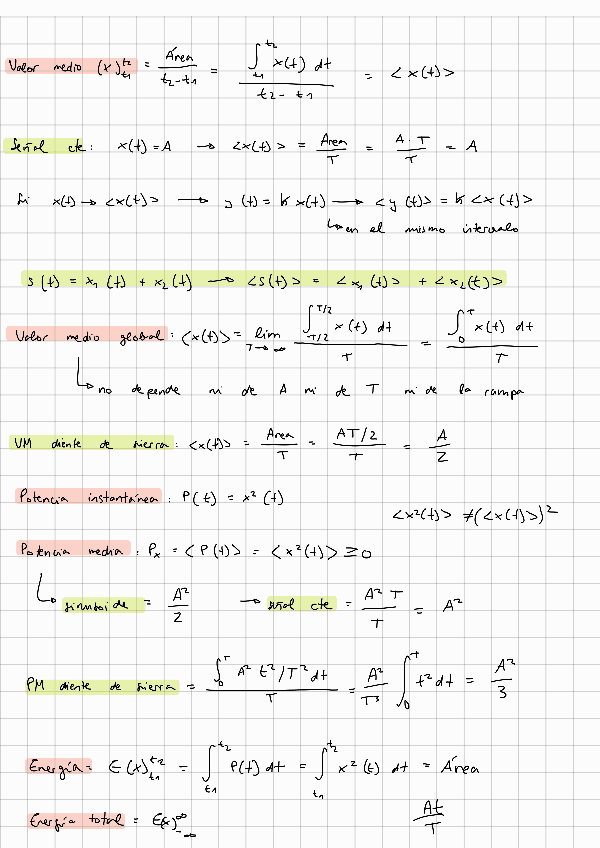 Valor medio (x)_{t1}^{t2} = Área / (t2 - t1) = ∫_{t1}^{t2} x(t) dt / (t2 - t1) = <x(t)>
Señal cte: x(t) = A → <x(t)> = Área / T = A·T / T = A
Si x(t) → <x(t)> → y(t) = K x(t) → <y(t)> = K <x(t)>
↳ en el mismo intervalo
s(t) = x1(t) + x2(t) → <s(t)> = <x1(t)> + <x2(t)>
Valor medio global: <x(t)> = lim_{T→∞} ∫_{-T/2}^{T/2} x(t) dt / T = ∫_0^T x(t) dt / T
↳ no depende ni de A ni de T ni de la rampa
VM diente de sierra: <x(t)> = Área / T = AT/2 / T = A / 2
Potencia instantánea: P(t) = x²(t)
<x²(t)> ≠ (<x(t)>)²
Potencia media: Px = <P(t)> = <x²(t)> ≥ 0
↳ sinusoide = A² / 2 → señal cte = A² T / T = A²
PM diente de sierra = ∫_0^T A² t²/T² dt / T = A² / T³ ∫_0^T t² dt = A² / 3
Energía = E(x)_{t1}^{t2} = ∫_{t1}^{t2} P(t) dt = ∫_{t1}^{t2} x²(t) dt = Área
Energía total = E(x)_{-∞}^{∞}
At / T